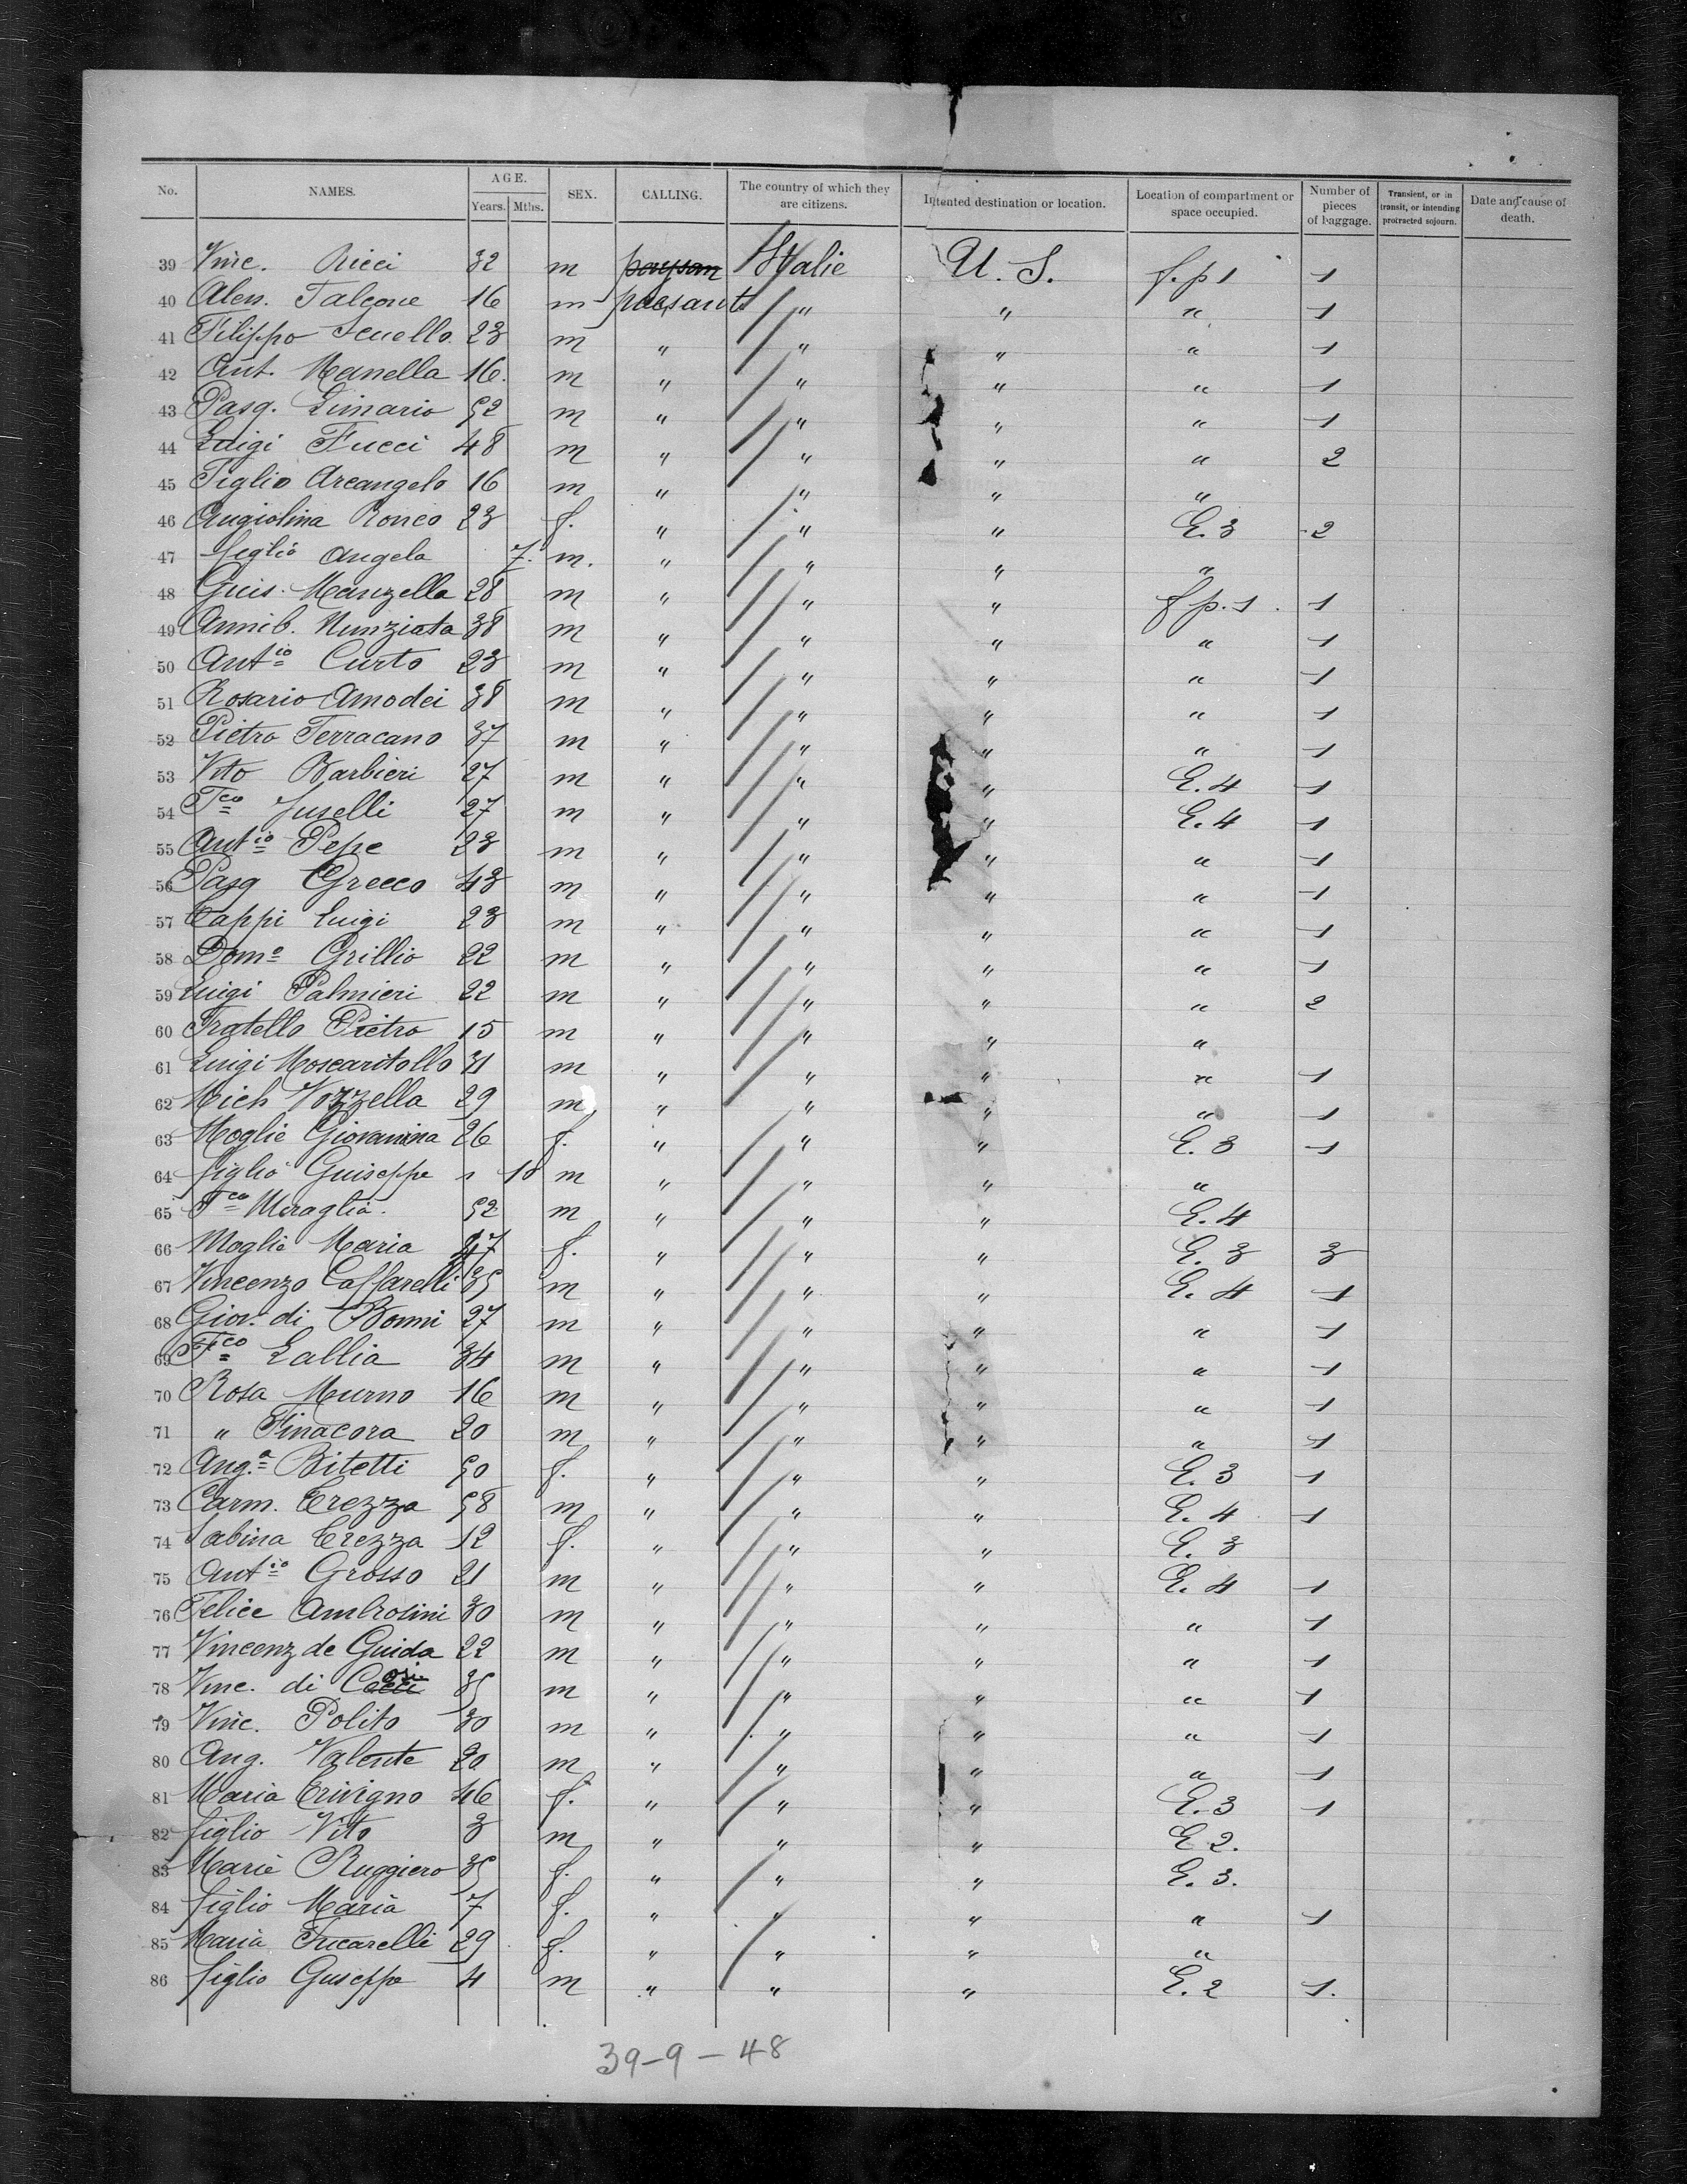 No. NAMES. AGE. Years. Mths. SEX. CALLING. The country of which they are citizens. Intented destination or location. Location of compartment or space occupied. Number of pieces of baggage. Transient, or in transit, or intending protracted sojourn. Date and cause of death.
39 Vinc. Ricci 32 m paysan Italie U. S. f. p 1 1
40 Aless. Falcone 16 m paesants " " " 1
41 Filippo 23 m " " " " 1
42 Ant. Manella 16. m " " " " 1
43 Pasq. Limario 52 m " " " " 1
44 Luigi Fucci 48 m " " " " 2
45 Figlio Arcangelo 16 m " " " "
46 Angiolina Ronco 23 f. " " " E. 3 2
47 figlio Angelo 7. m. " " " "
48 Guis. Manzella 28 m " " " f p. 1. 1
49 Annib. Nunziata 38 m " " " " 1
50 Antio Curto 23 m " " " " 1
51 Rosario Amodei 38 m " " " " 1
52 Pietro Terracano 37 m " " " " 1
53 Vito Barbieri 27 m " " " E. 4 1
54 Fco Juselli 27 m " " " E. 4 1
55 Antio Pepe 23 m " " " " 1
56 Pasq Grecco 43 m " " " " 1
57 Cappi Luigi 23 m " " " " 1
58 Domo Grillio 22 m " " " " 1
59 Luigi Palmieri 22 m " " " " 2
60 Fratello Pietro 15 m " " " "
61 Luigi Moscaritollo 31 m " " " " 1
62 Mich Vozzella 29 m " " " " 1
63 Moglie Giovanina 26 f. " " " E. 3 1
64 figlio Guiseppe " 18 m " " " "
65 Fco Miraglia. 52 m " " " E. 4
66 Moglie Maria 47 f. " " " E. 3 3
67 Vincenzo Caffarelli 35 m " " " E. 4 1
68 Giov. di Bonni 27 m " " " " 1
69 Fco Lallia 34 m " " " " 1
70 Rosa Murno 16 m " " " " 1
71 " Finacora 20 m " " " " 1
72 Ang.a Bitetti 50 f. " " " E. 3 1
73 Carm. Crezza 58 m " " " E. 4 1
74 Sabina Crezza 12 f. " " " E. 3
75 Antio Grosso 21 m " " " E. 4 1
76 Felice Ambrosini 30 m " " " " 1
77 Vincenz de Guida 22 m " " " " 1
78 Vinc. di Cosi 35 m " " " " 1
79 Vinc. Polito 30 m " " " " 1
80 Ang. Valente 20 m " " " " 1
81 Maria Crivigno 46 f. " " " E. 3 1
82 figlio Vito 3 m " " " E 2.
83 Marie Ruggiero 35 f. " " " E. 3.
84 figlio Maria 7 f. " " " " 1
85 Maria Fucarelli 29 f. " " " "
86 figlio Guseppe 4 m " " " E. 2 1.
39-9-48